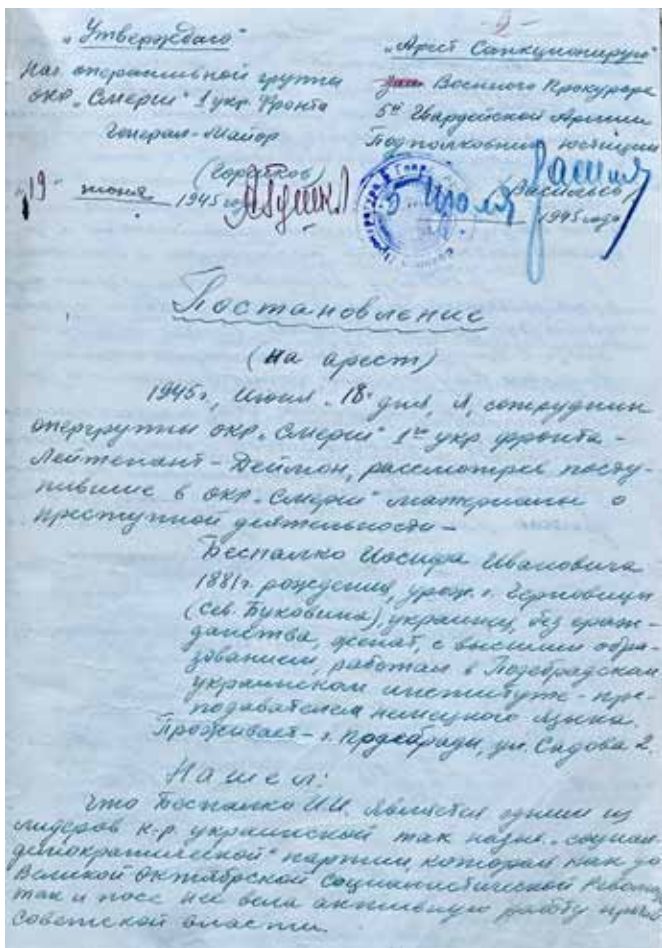 - 2 -
„Утверждаю"
Нач оперативной группы
ОКР „Смерш" 1 укр. Фронта
Генерал-Майор
(Горшков)
„19" июня 1945 год
„Арест Санкционирую"
Военного Прокурора
5й Гвардейской Армии
Подполковник юстиции
(Васильев)
5 Июля 1945 года
Постановление
(на арест)
1945 г., Июня „18" дня, Я, сотрудник
опергруппы ОКР „Смерш" 1го укр. фронта –
Лейтенант – Деймон, рассмотрев посту-
пившие в ОКР „Смерш" материалы о
преступной деятельности –
Беспалко Иосифа Ивановича
1881 г. рождения, урож. г. Черновицы
(Сев. Буковина), украинец, без граж-
данства, женат, с высшим обра-
зованием, работал в Подебрадском
украинском институте – пре-
подавателем немецкого языка.
Проживает – г. Подебрады, ул. Садова 2.
Нашел:
Что Беспалко И.И. является одним из
лидеров к-р. украинской так назыв. „социал-
демократической" партии, которая как до
Великой Октябрской Социалистической Револю
так и после нее вела активную работу против
Советской власти.